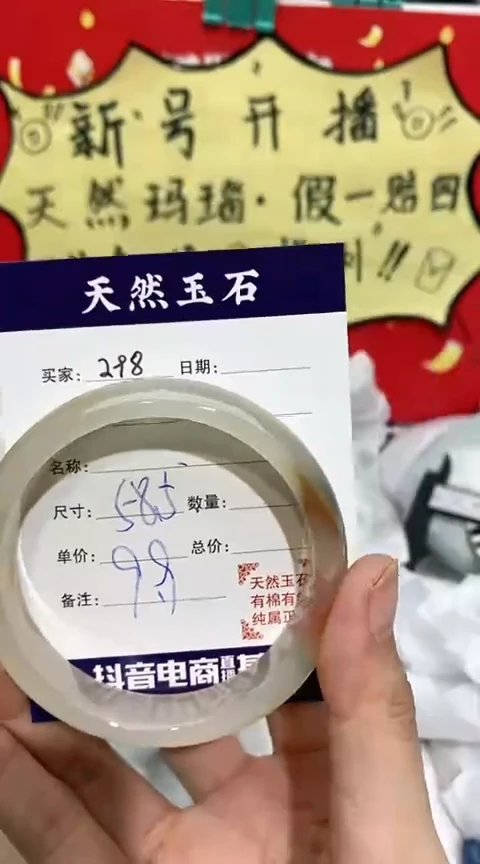 新号开播
天然玛瑙·假一赔四
天然玉石
买家: 298 日期:
名称:
尺寸: 585 数量:
单价: 98 总价:
备注:
天然玉石
有棉有
纯属正
抖音电商直播基